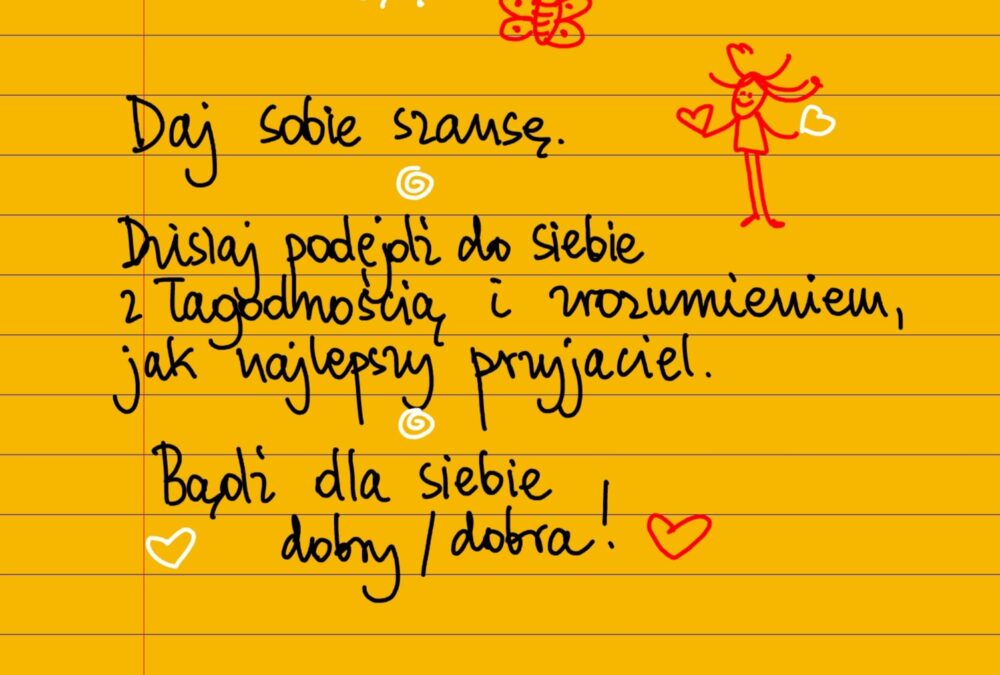 Daj sobie szansę.
Dzisiaj podejdź do siebie
z łagodnością i zrozumieniem,
jak najlepszy przyjaciel.
Bądź dla siebie
dobry / dobra!